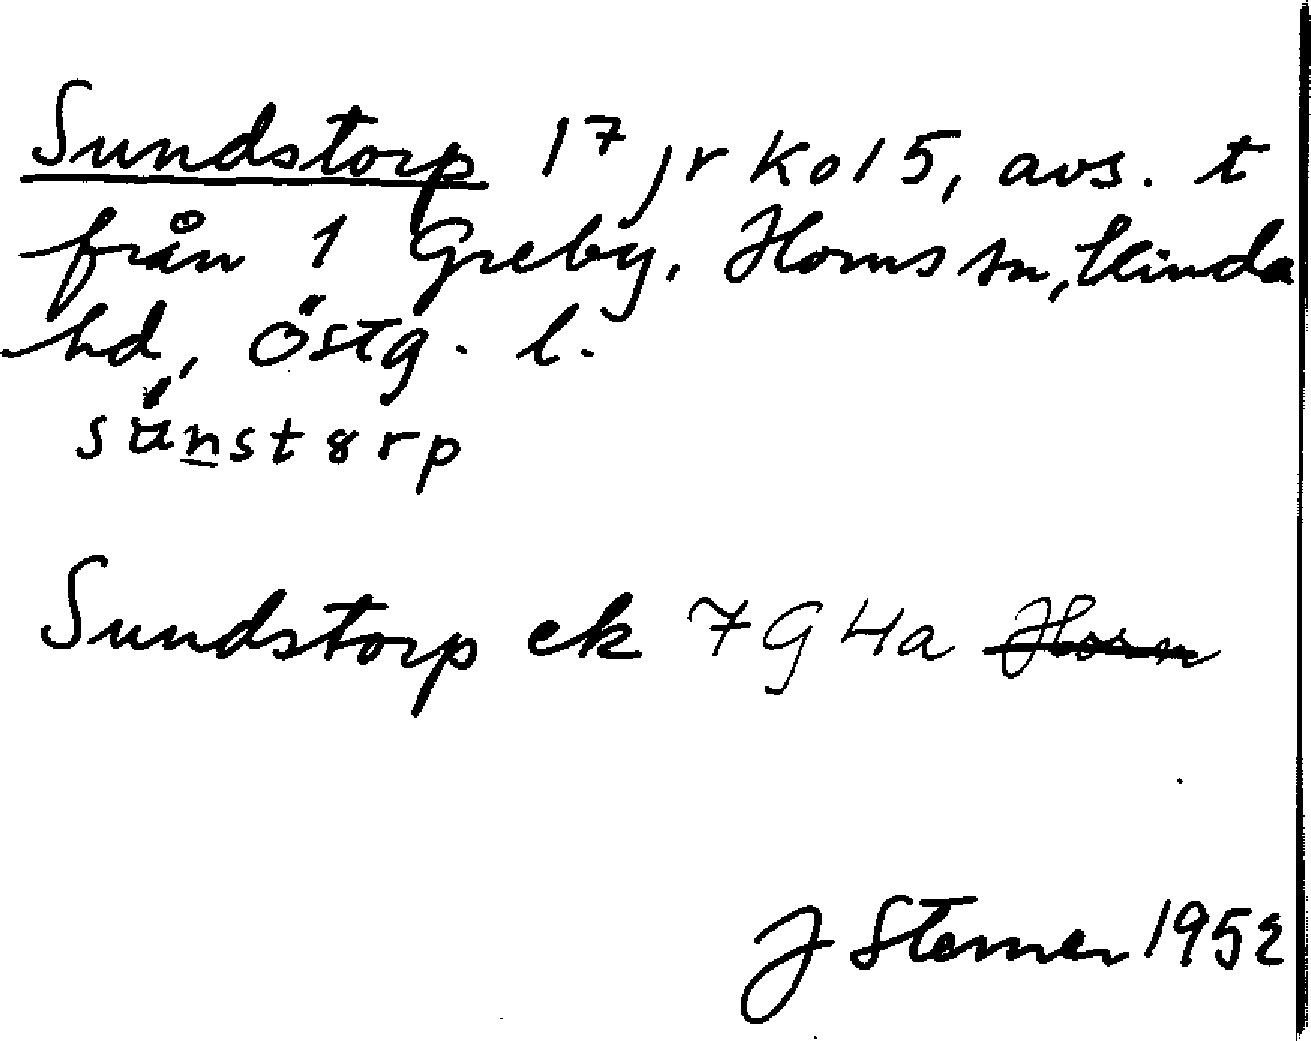 Sundstorp 1⁷ jr ko 15, avs. t
från 1 Greby, Horns sn, Kinda
hd, Östg. l.
sünst8rp
Sundstorp ek 7G4a Horn
J Sterner 1952